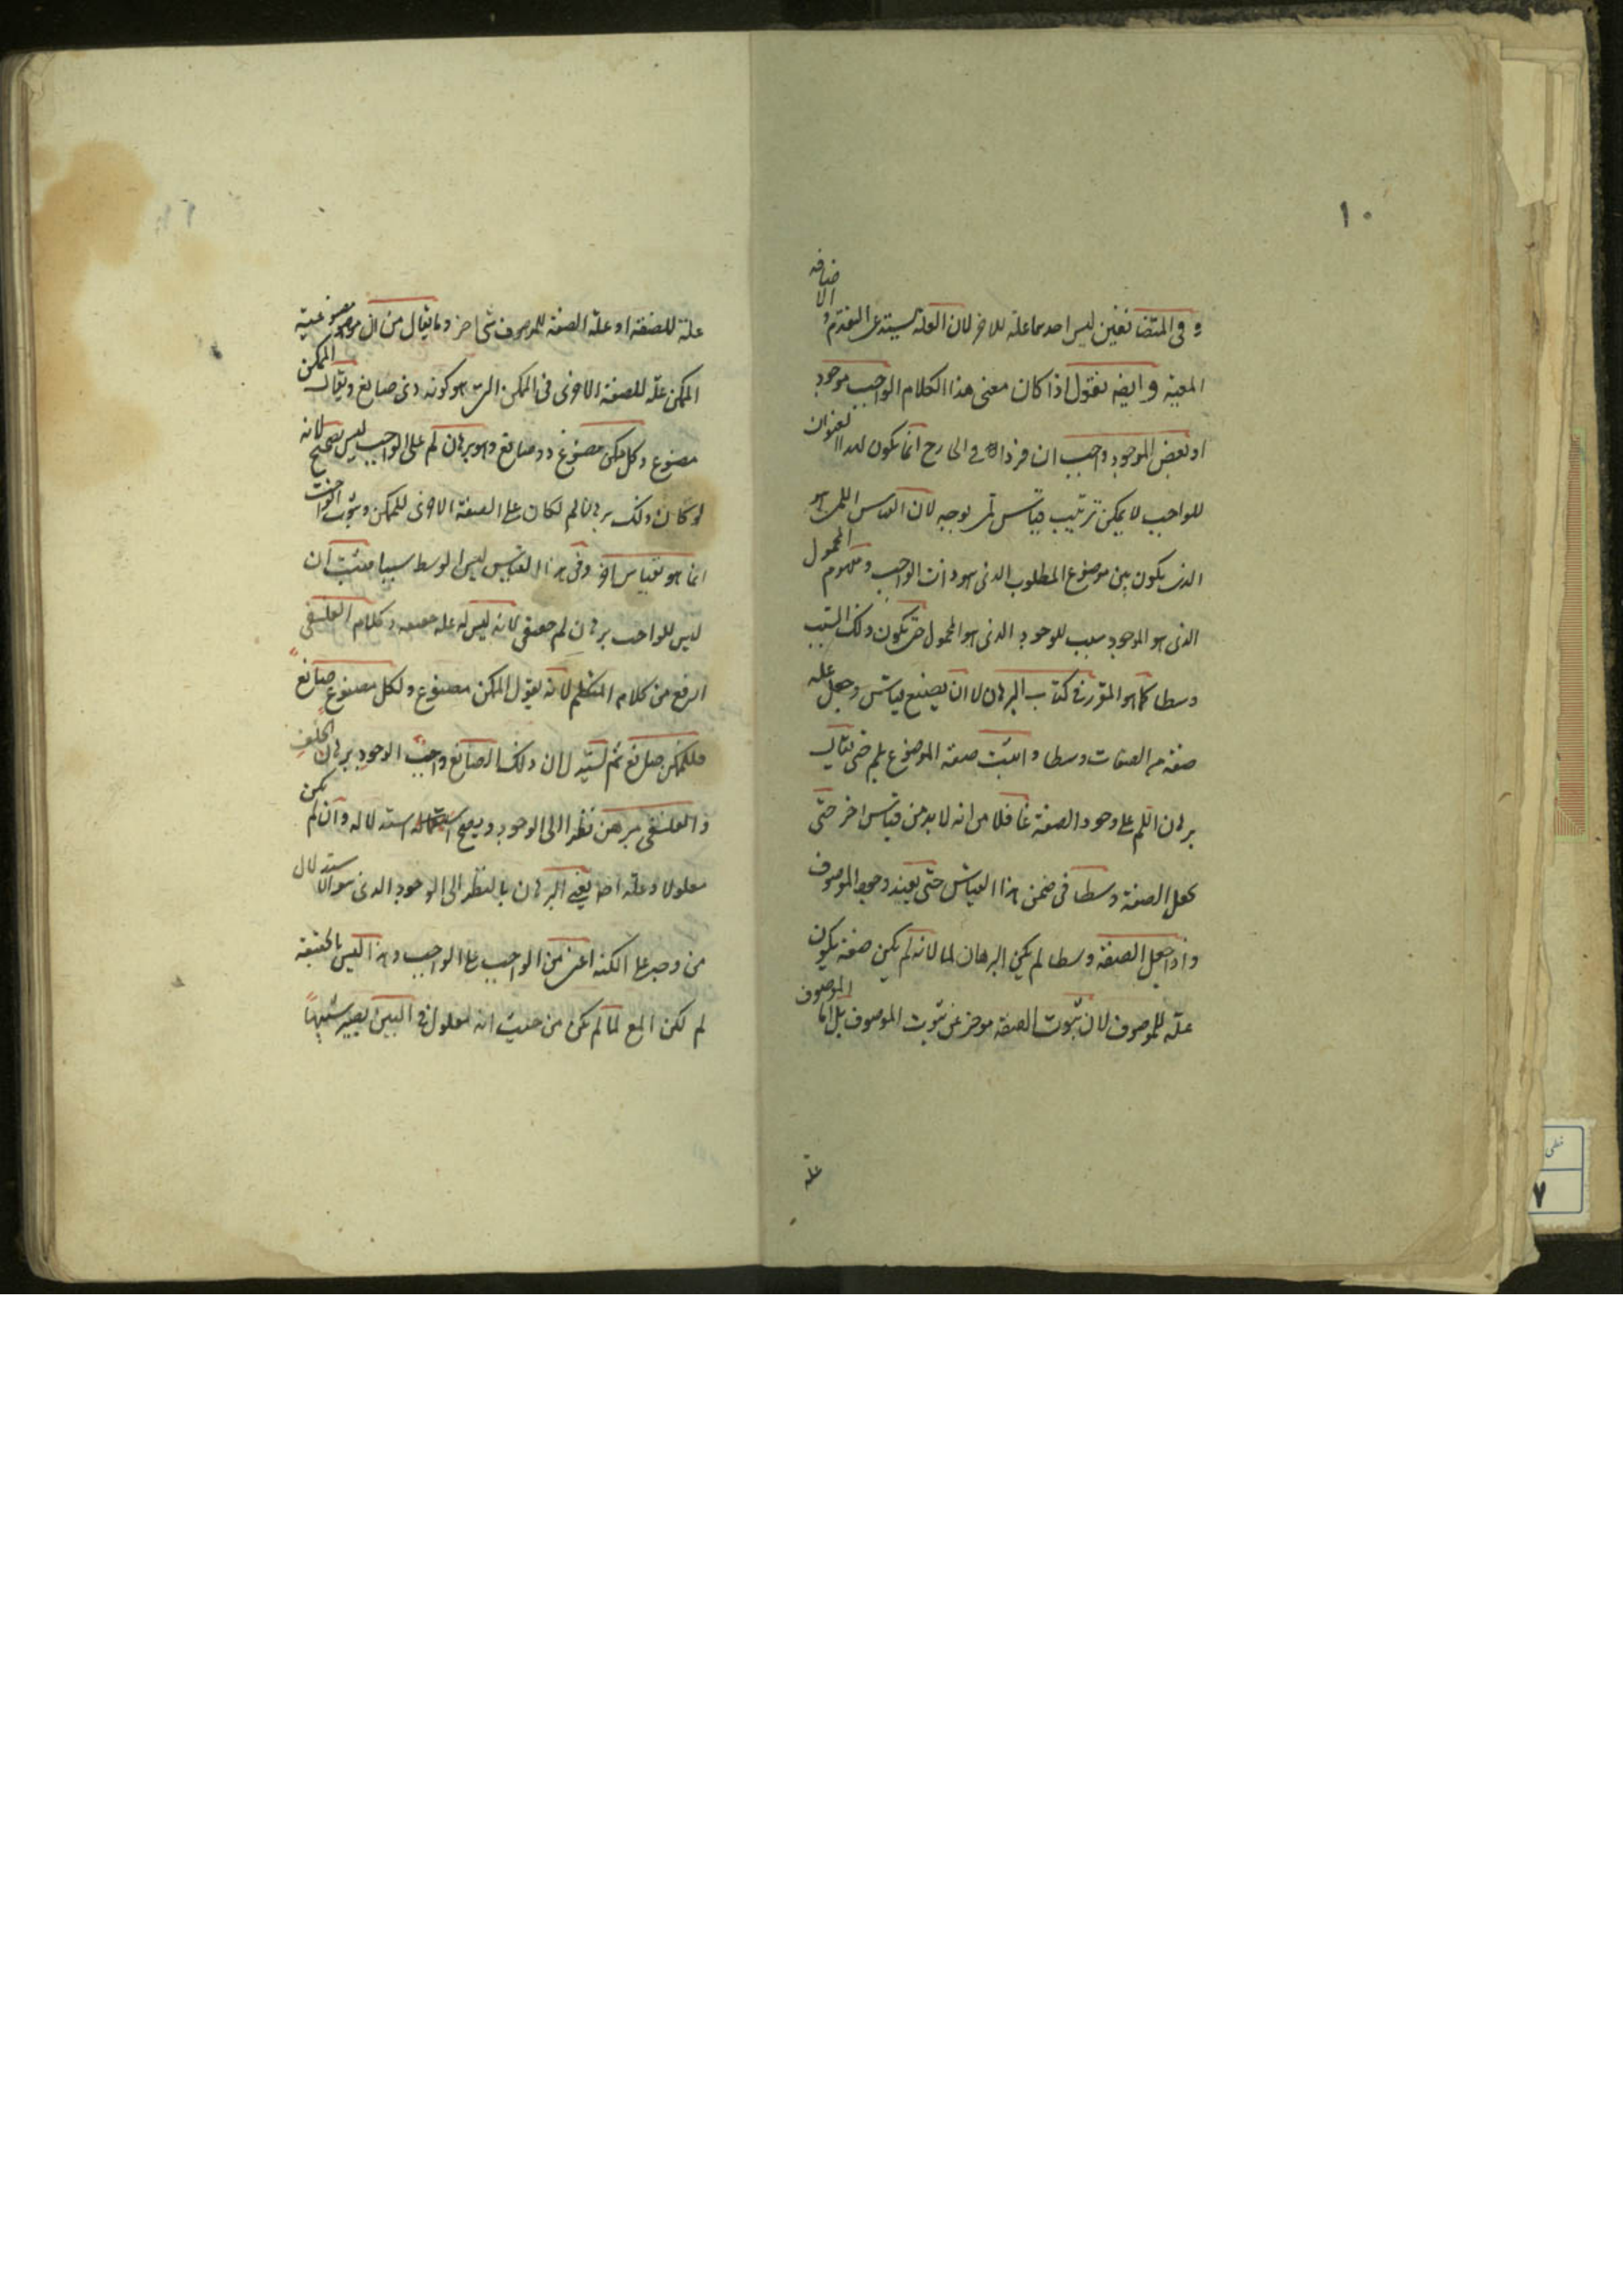 ١٠
و فى المتضائفين ليس احدهما علة للاخر لان العلة يستدعى التقدم و الاضافه
المعية و ايضه نقول اذا كان معنى هذا الكلام الواجب موجود
او بعض الموجود واجب ان فردا فى الخارج انما يكون لهذا العنوان
للواجب لا يمكن ترتيب قياس لمى بوجه لان القياس اللمى هو
الذى يكون بين موضوع المطلوب الذى هو ذات الواجب و مفهوم المحمول
الذى هو الموجود سبب للوجود الذى هو المحمول حتى يكون ذلك السبب
وسطا كما هو المقرر فى كتاب البرهان لا ان يصنع قياس و جعل علة
صفة من الصفات وسطا و اثبت صفة الموضوع بلم حتى يقال
برهان اللم على وجود الصفة غافلا من انه لا بد من قياس اخر حتى
يجعل الصفة وسطا فى ضمن هذا القياس حتى يفيد وجود الموصوف
و اذا جعل الصفة وسطا لم يكن البرهان لما لانه لم يكن صفة يكون
علة للموصوف لان ثبوت الصفة موخر عن ثبوت الموصوف بل اما الموصوف
علة
علة للصفة او علة الصفة للموصوف شى اخر و ما يقال من ان مصنوعية
الممكن علة للصفة الاخرى فى الممكن التى هو كونه ذى صانع و يقال الممكن
مصنوع و كل ممكن مصنوع ذو صانع و هو برهان لم على الواجب ليس بصحيح لانه
لو كان ذلك برهان لم لكان على الصفة الاخرى للممكن و ثبوت الواجب
انما هو بقياس اخر و فى هذا القياس ليس الوسط سببا فثبت ان
ليس للواجب برهان لم حقيقى لانه ليس له علة حقيقه و كلام الفلسفى
ارفع من كلام المتكلم لانه يقول الممكن مصنوع و لكل مصنوع صانع
فللممكن صانع ثم لستير لان ذلك الصانع واجب الوجود برهان الخلف
و الفلسفى يبرهن نظرا الى الوجود و يصح استدلاله و ان لم يكن
معلولا و علة اصلا يعنى البرهان بالنظر الى الوجود الذى هو الاستدلال
من وجه على الكنه اعنى من الواجب على الواجب و هذا ليس بالحقيقة
لم لكن المع لما لم يكن من حيث انه معلول فى البين يصير شبيها